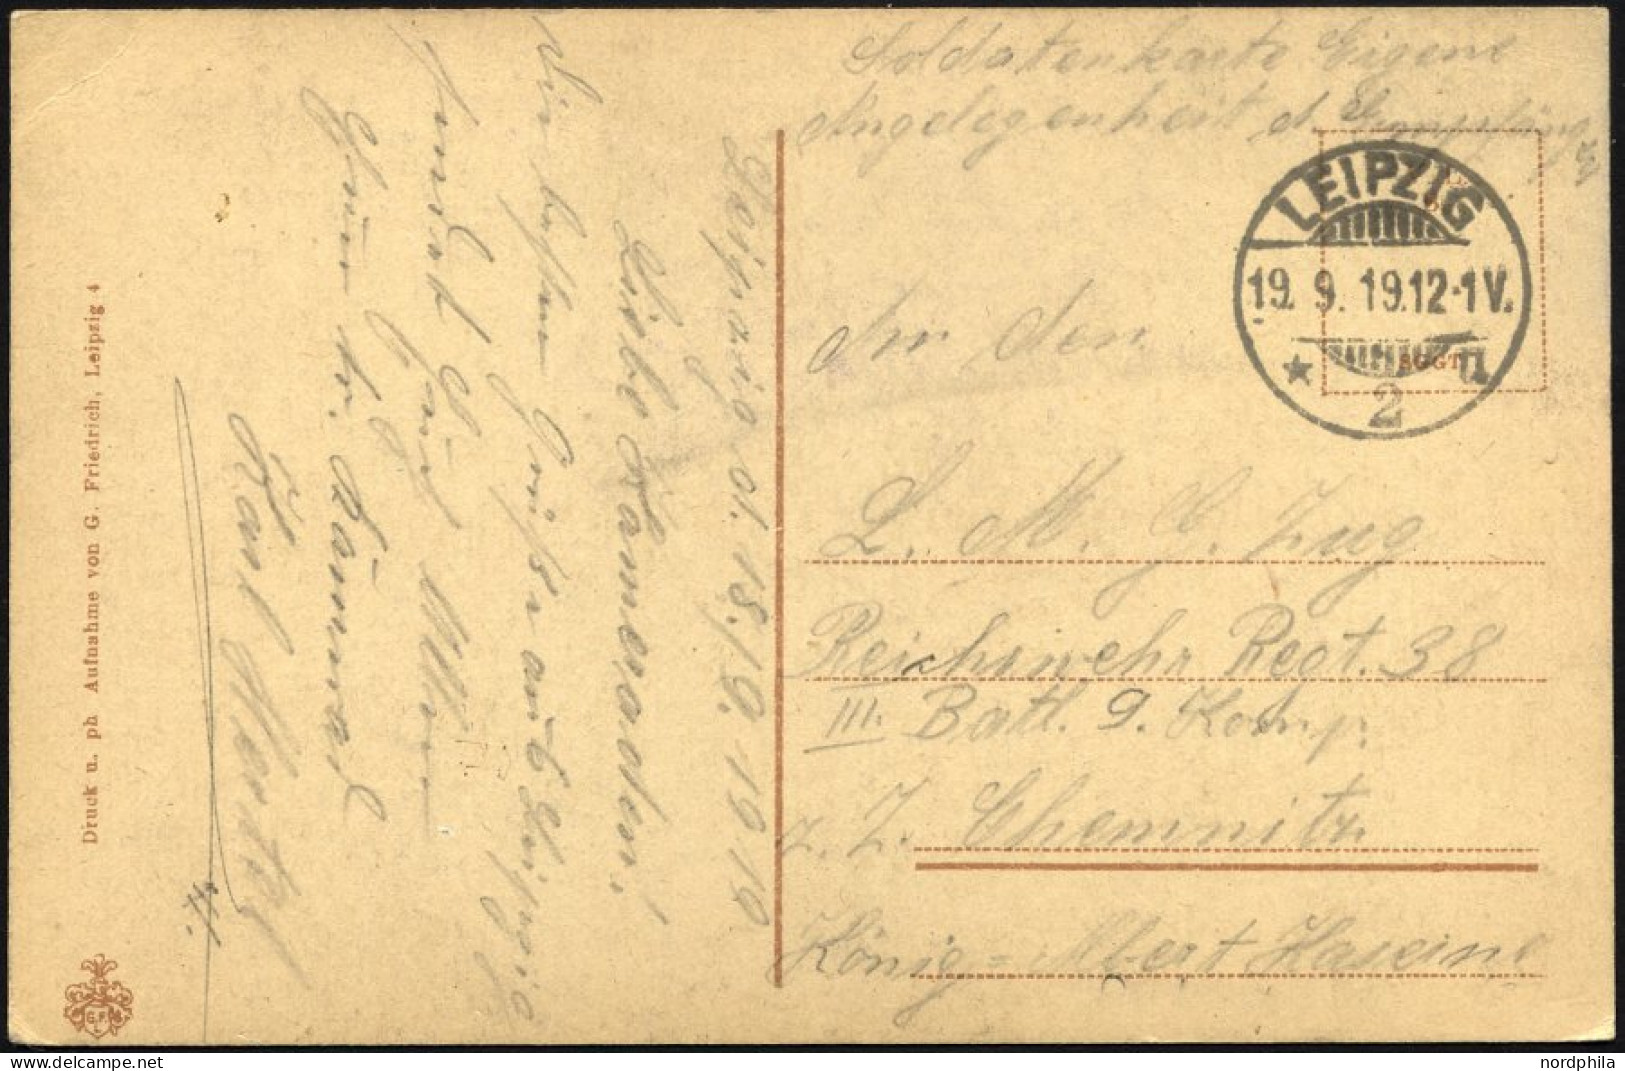 Soldatenkarte Eigene
Angelegenheit d. Empfängers
LEIPZIG
19. 9. 19. 12-1 V.
* 2 u
SGGT
An den
L. M. G. Zug
Reichswehr Regt. 38
III. Batl. 9. Komp.
z. Z. Chemnitz
König-Albert Kaserne
Leipzig d. 18./9. 1919
Liebe Kameraden!
Die besten Grüße aus Leipzig
sendet Euch Allen
Euer Kamerad
Karl
Druck u. ph Aufnahme von G. Friedrich, Leipzig 4
G.F.
L.
nordphila